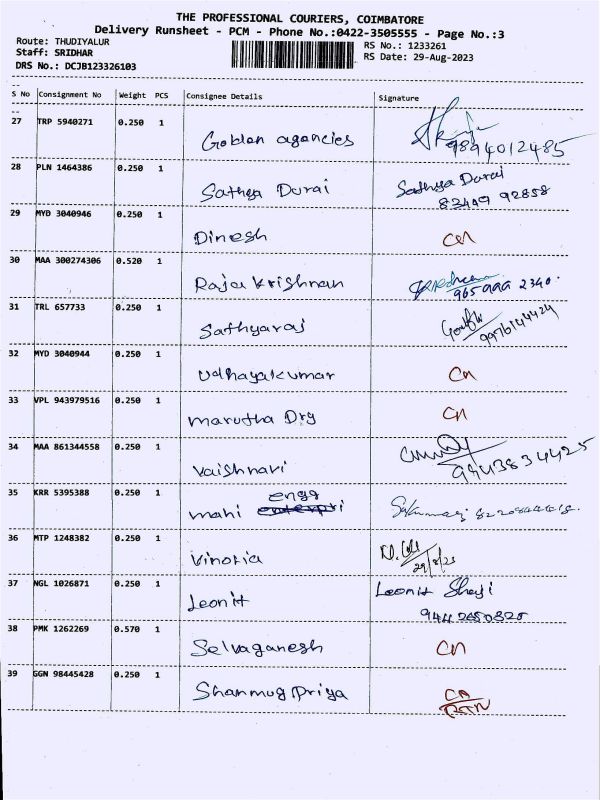 THE PROFESSIONAL COURIERS, COIMBATORE
Delivery Runsheet - PCM - Phone No.:0422-3505555 - Page No.:3
Route: THUDIYALUR
RS No.: 1233261
Staff: SRIDHAR
RS Date: 29-Aug-2023
DRS No.: DCJB123326103
S No Consignment No Weight PCS Consignee Details Signature
27 TRP 5940271 0.250 1
Goblan agencies 9894012485
28 PLN 1464386 0.250 1
Sathya Durai Sathya Durai
82489 92858
29 MYD 3040946 0.250 1
Dinesh CN
30 MAA 300274306 0.520 1
Raja Krishnan
965 999 2340.
31 TRL 657733 0.250 1
Sathyaraj 9976144424
32 MYD 3040944 0.250 1
Udhayakumar CN
33 VPL 943979516 0.250 1
marutha Drg CN
34 MAA 861344558 0.250 1
Vaishnavi 9943834425
35 KRR 5395388 0.250 1
engg
mahi
36 MTP 1248382 0.250 1
Vinoria 29/8/23
37 NGL 1026871 0.250 1
Leonit Leonit Shaji
9442650325
38 PMK 1262269 0.570 1
Selvaganesh CN
39 GGN 98445428 0.250 1
Shanmug priya CN
RTN